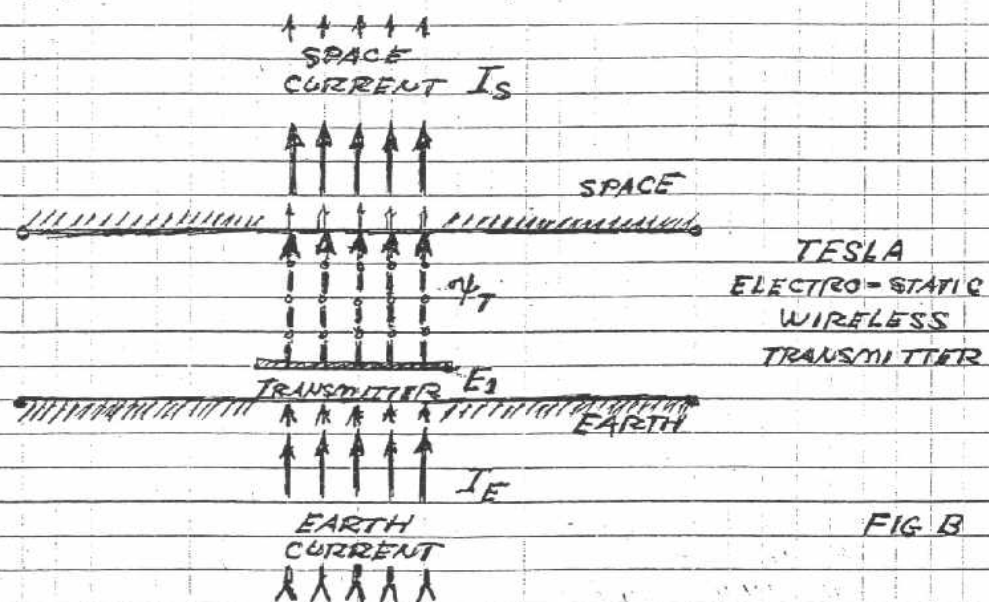 SPACE
CURRENT I_S
SPACE
TESLA
ELECTRO-STATIC
WIRELESS
TRANSMITTER
ψ_T
E_1
TRANSMITTER
EARTH
I_E
EARTH
CURRENT
FIG B